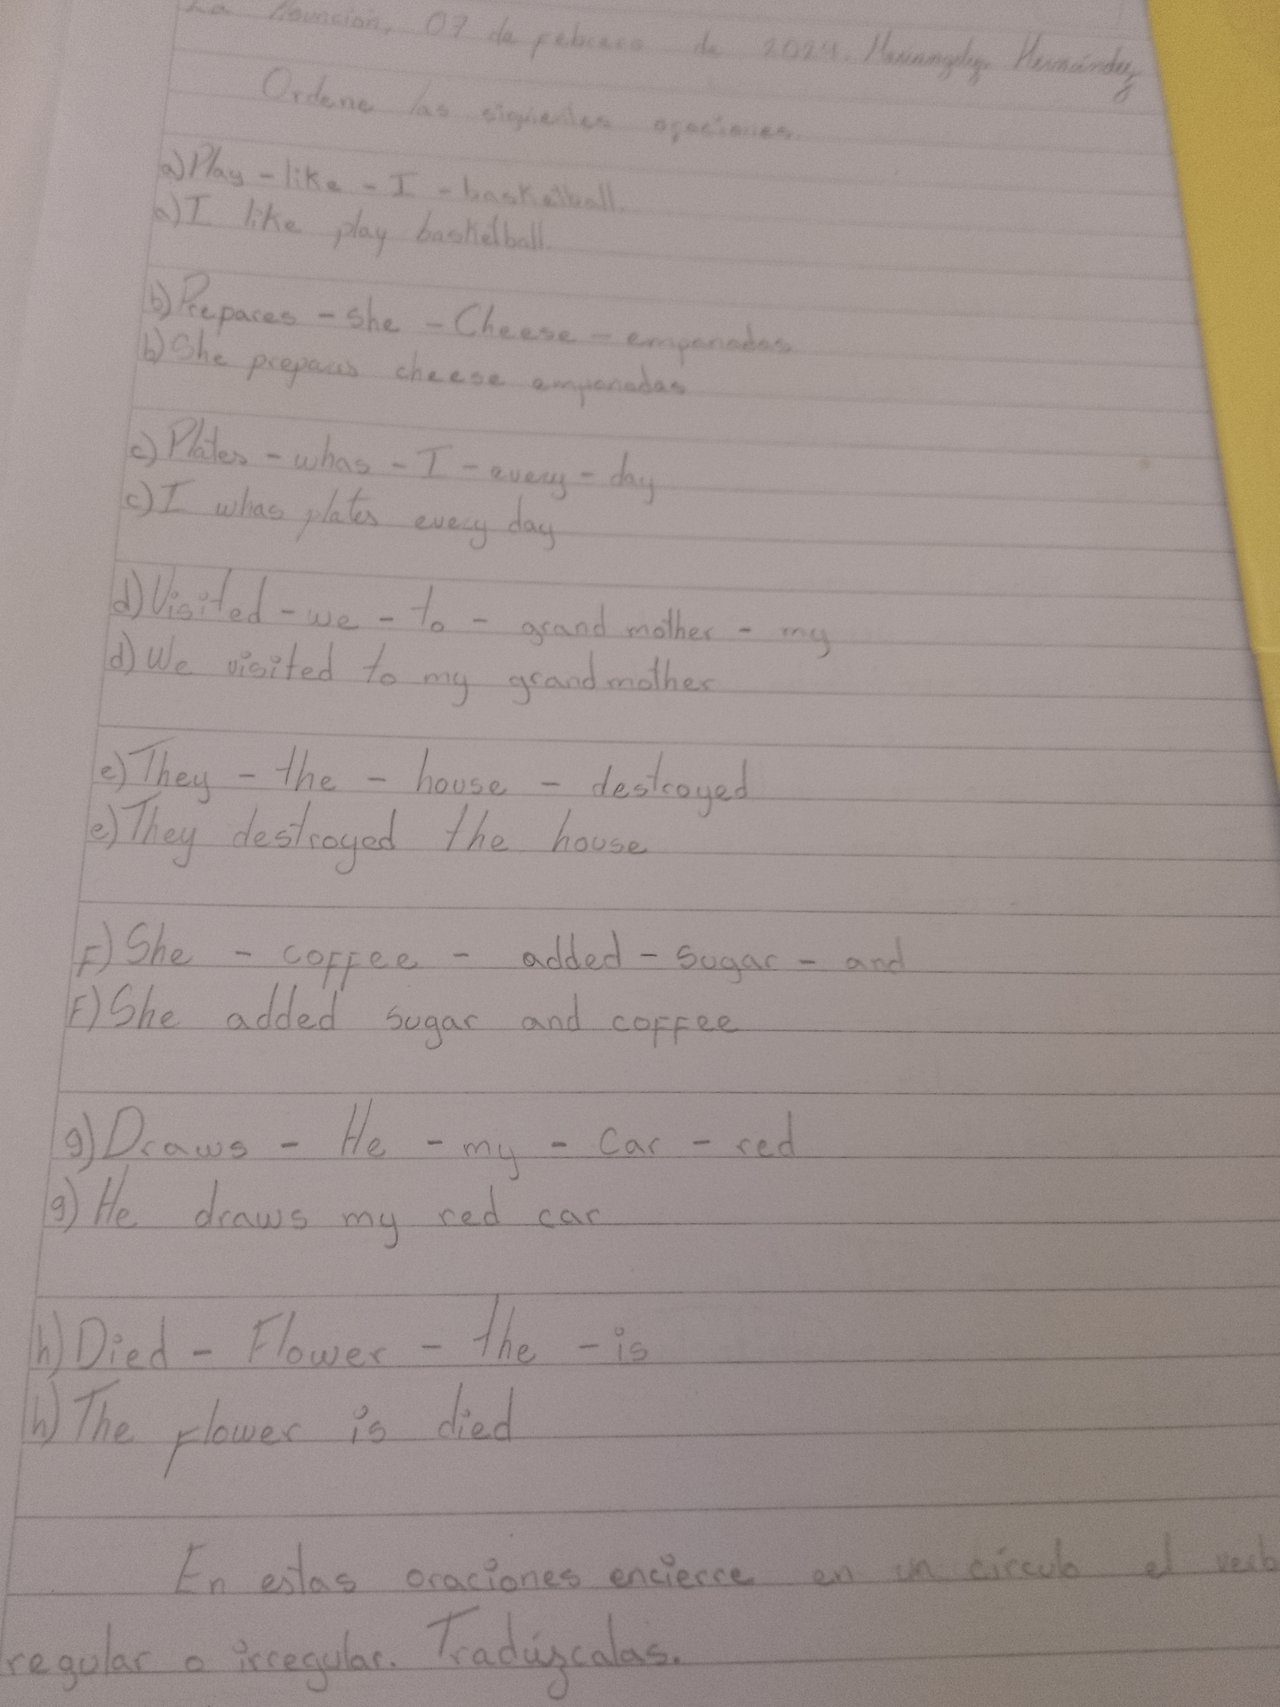 La Asunción, 07 de febrero de 2024. Hernández
Ordene las siguientes oraciones.
a) Play - like - I - basketball.
a) I like play basketball.
b) Prepares - she - Cheese - empanadas
b) She prepares cheese empanadas
c) Plates - whas - I - every - day
c) I whas plates every day
d) Visited - we - to - grand mother - my
d) We visited to my grand mother
e) They - the - house - destroyed
e) They destroyed the house
F) She - coffee - added - sugar - and
F) She added sugar and coffee
g) Draws - He - my - Car - red
g) He draws my red car
h) Died - Flower - the - is
h) The flower is died
En estas oraciones encierre en un círculo el verb
regular o irregular. Tradúzcalas.